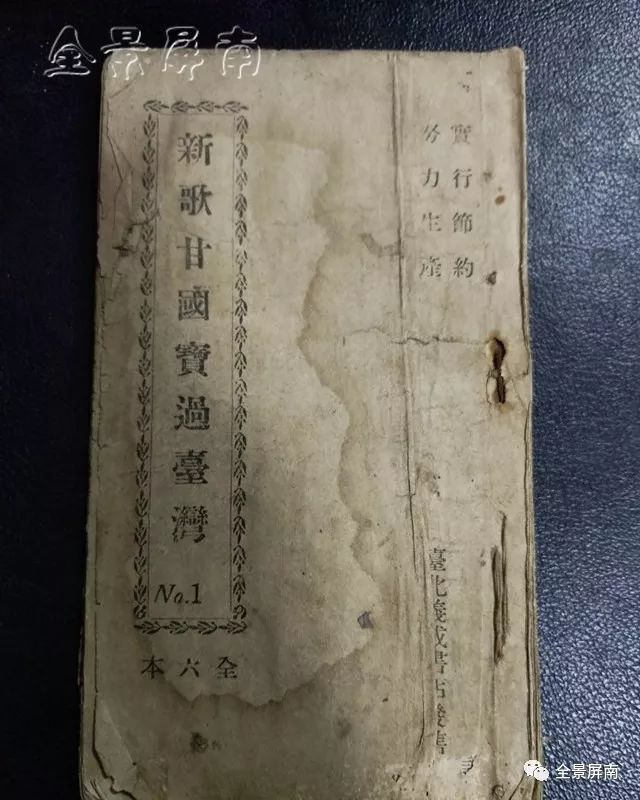 全景屏南
實行節約
努力生產
新歌甘國寶過臺灣
No.1
全六本
臺北義成書店發售
全景屏南